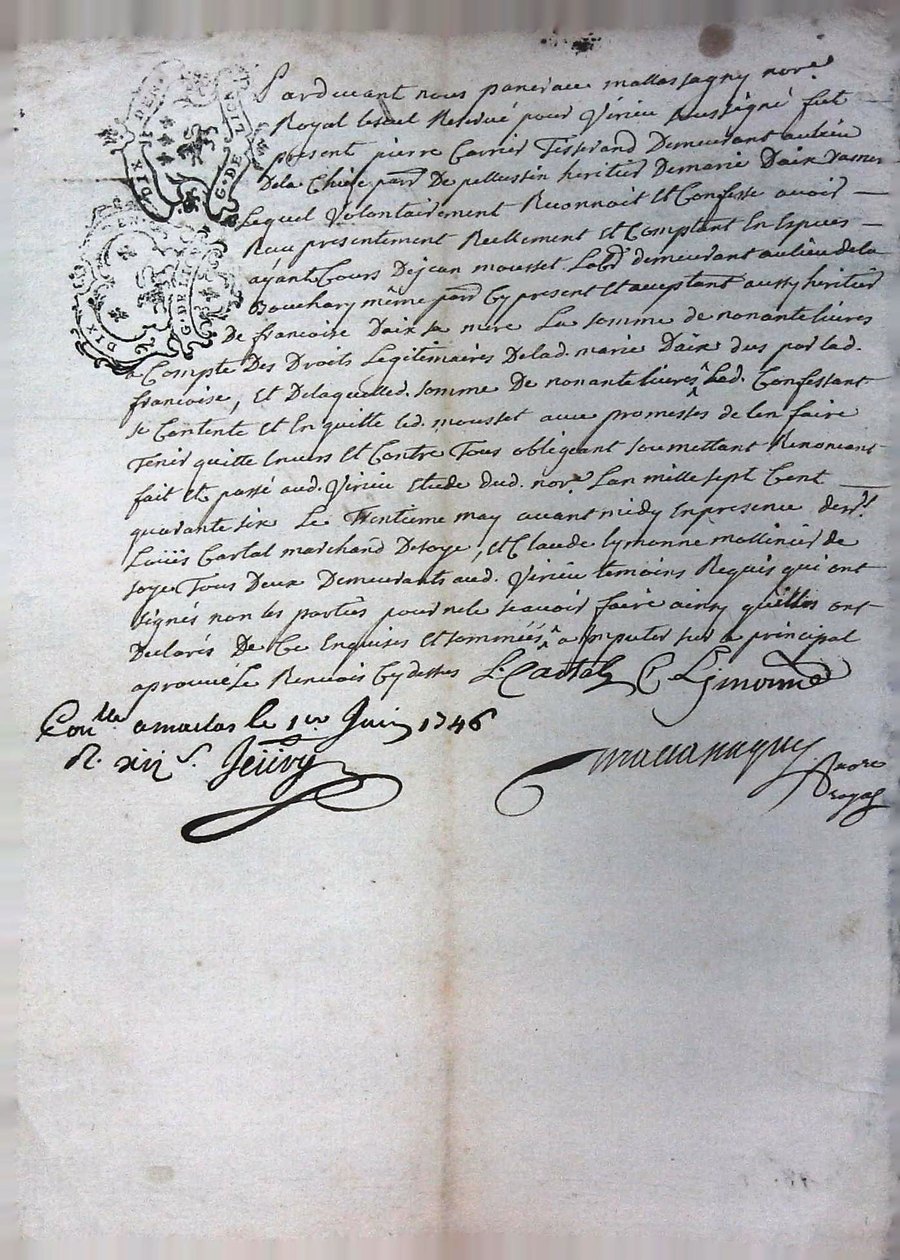 DIX DEN
G. DE LION
DIX
G. DE LION
Pardevant nous pancrace mallassagny nore.
Royal Reservé pour Virieu soussigné fut
present pierre Carrier Tisserand Demeurant au lieu
De la Chièze parr. De pellussin heritier De marie Daix sa mere
Lequel Volontairement Reconnoit Et Confesse avoir
Receu presentement Reellement Et Comptant En Espuces
ayant Cours De jean mousset Labr. demeurant au lieu de la
Bouchary même parr. Cy present Et aceptant aussy heritier
De francoise Daix sa mere La somme de nonante livres
a Compte Des Droits Legitimaires De lad. marie Daix dus par lad.
francoise, Et De laquelle d. somme De nonante livres led. Confessant
se Contente Et En quitte led. mousset avec promesses de len faire
Tenir quitte Envers Et Contre Tous obligeant soumettant Renoncant
fait Et passé aud. Virieu Etude dud. nore. Lan mille sept Cent
quarante six Le Trentieme may avant midy En presence de sr.
Loüis Cartal marchand De soye, Et Claude Lymonne mollinier de
soye Tous Deux Demeurants aud. Virieu temoins Requis qui ont
signés non les parties pour ne le scavoir faire ainsy quelles ont
Declarés De Ce Enquises Et sommées a imputer sur le principal
aprouve Le Renvois Cy dessus L. Cartal C Limonne
Conlle a maclas le 1er Juin 1746
R. xii s. Jeüvy
mallassagny nore
royal